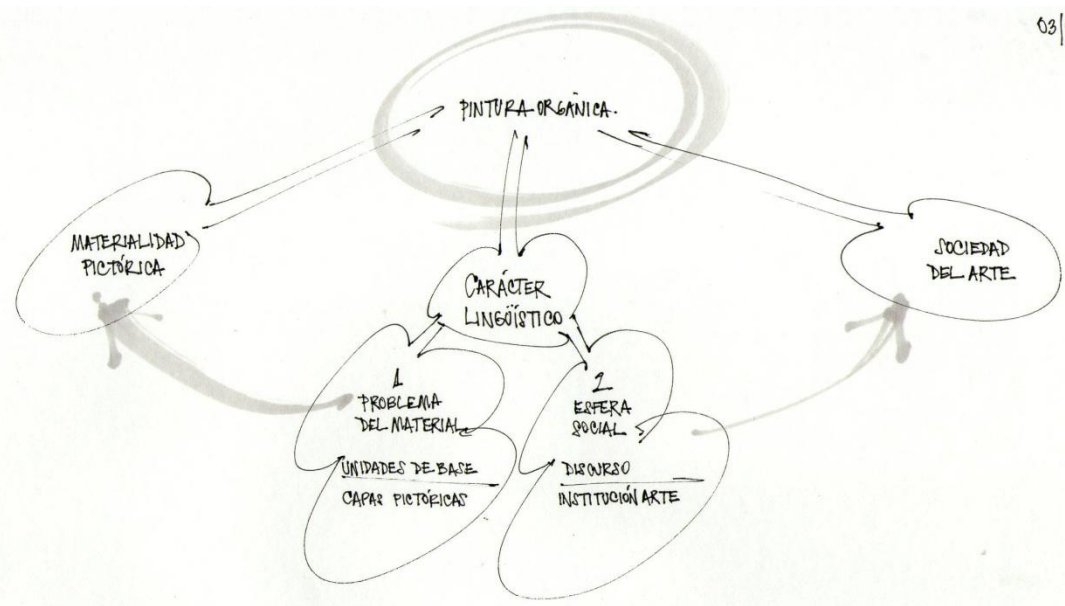 03|
PINTURA ORGÁNICA.
MATERIALIDAD
PICTÓRICA
SOCIEDAD
DEL ARTE
CARÁCTER
LINGÜÍSTICO
1
PROBLEMA
DEL MATERIAL
UNIDADES DE BASE
CAPAS PICTÓRICAS
2
ESFERA
SOCIAL
DISCURSO
INSTITUCIÓN ARTE